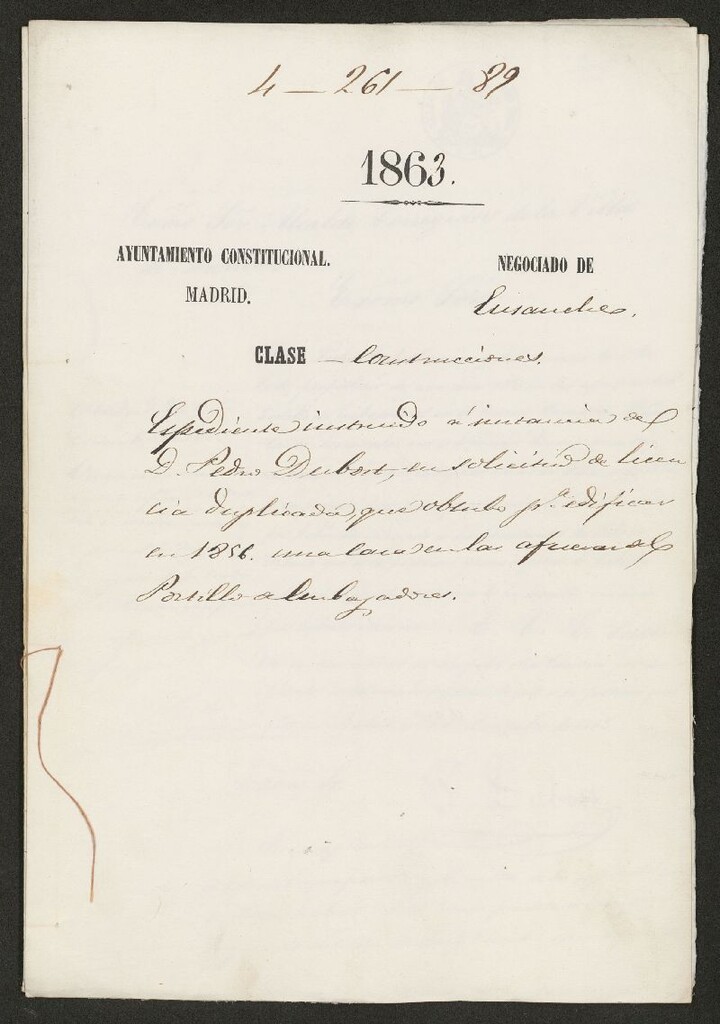 4 — 261 — 89
1863.
AYUNTAMIENTO CONSTITUCIONAL.
MADRID.
NEGOCIADO DE
Ensanche.
CLASE — Construcciones.
Espediente instruido á instancia de
D. Pedro Dubost, en solicitud de licen
cia duplicada, que obtubo pª edificar
en 1856. una casa en las afueras del
Portillo de Embajadores.